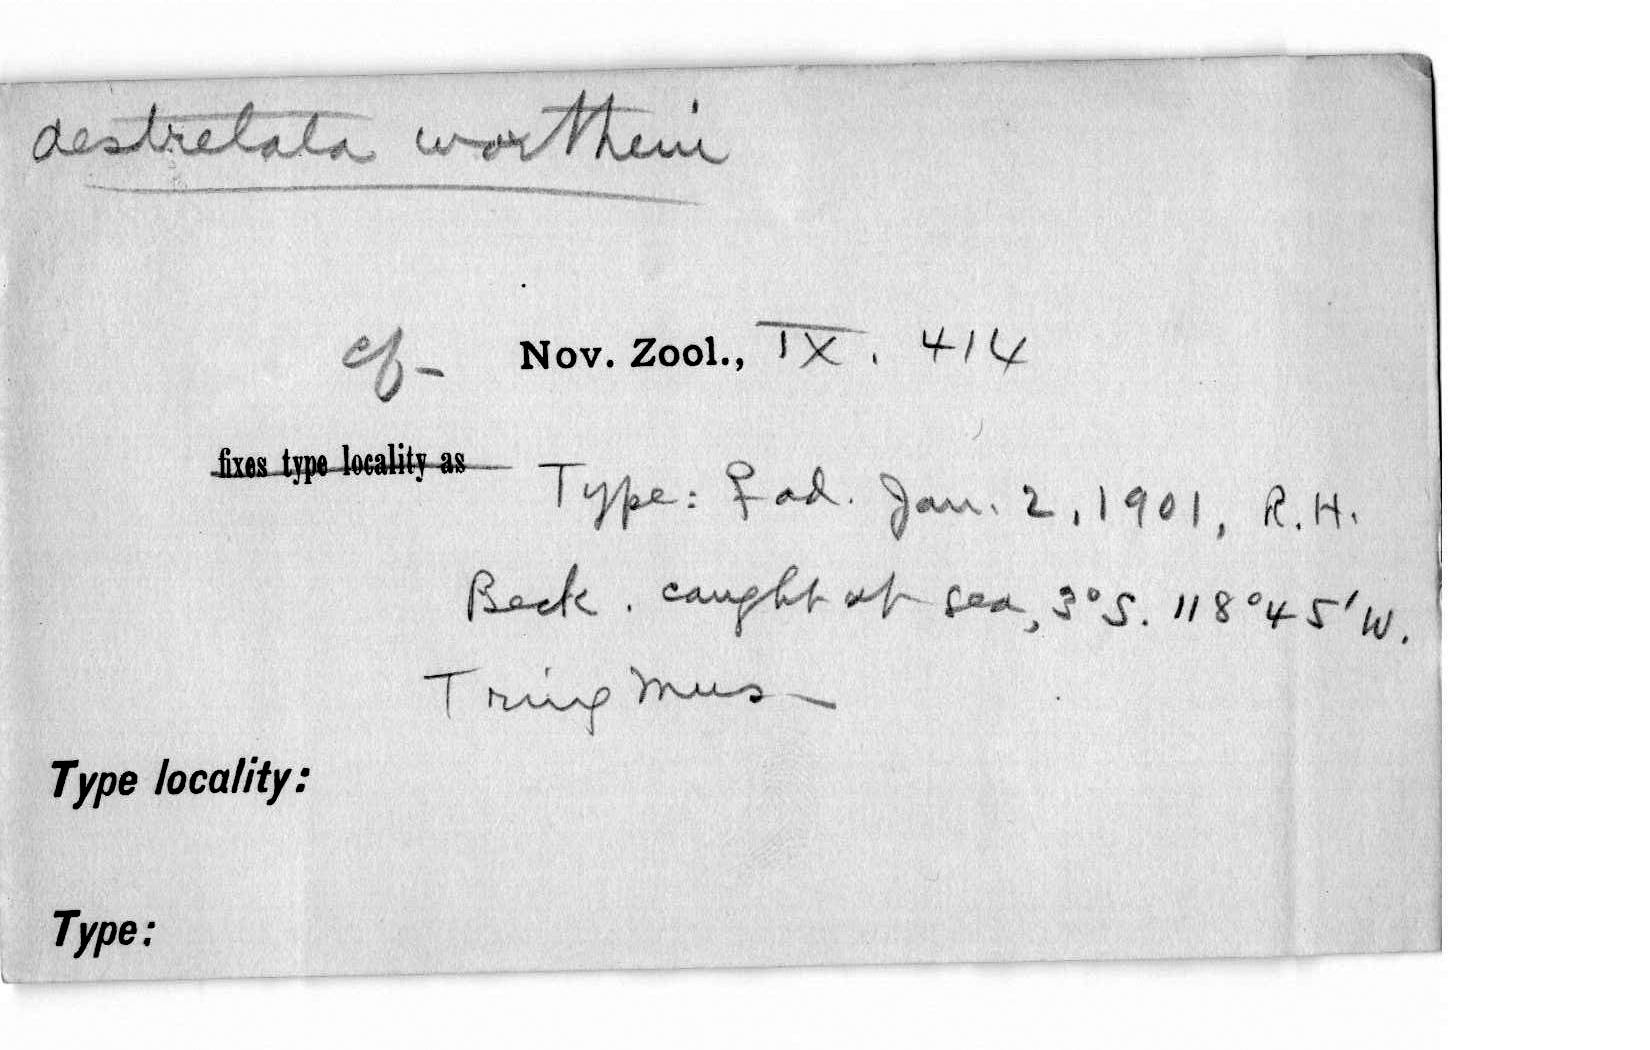 aestrelata wortheni
cf- Nov. Zool., IX. 414
fixes type locality as Type: ♀ ad. Jan. 2, 1901, R.H.
Beck. caught at sea, 3°S. 118°45'W.
Tring Mus-
Type locality:
Type: